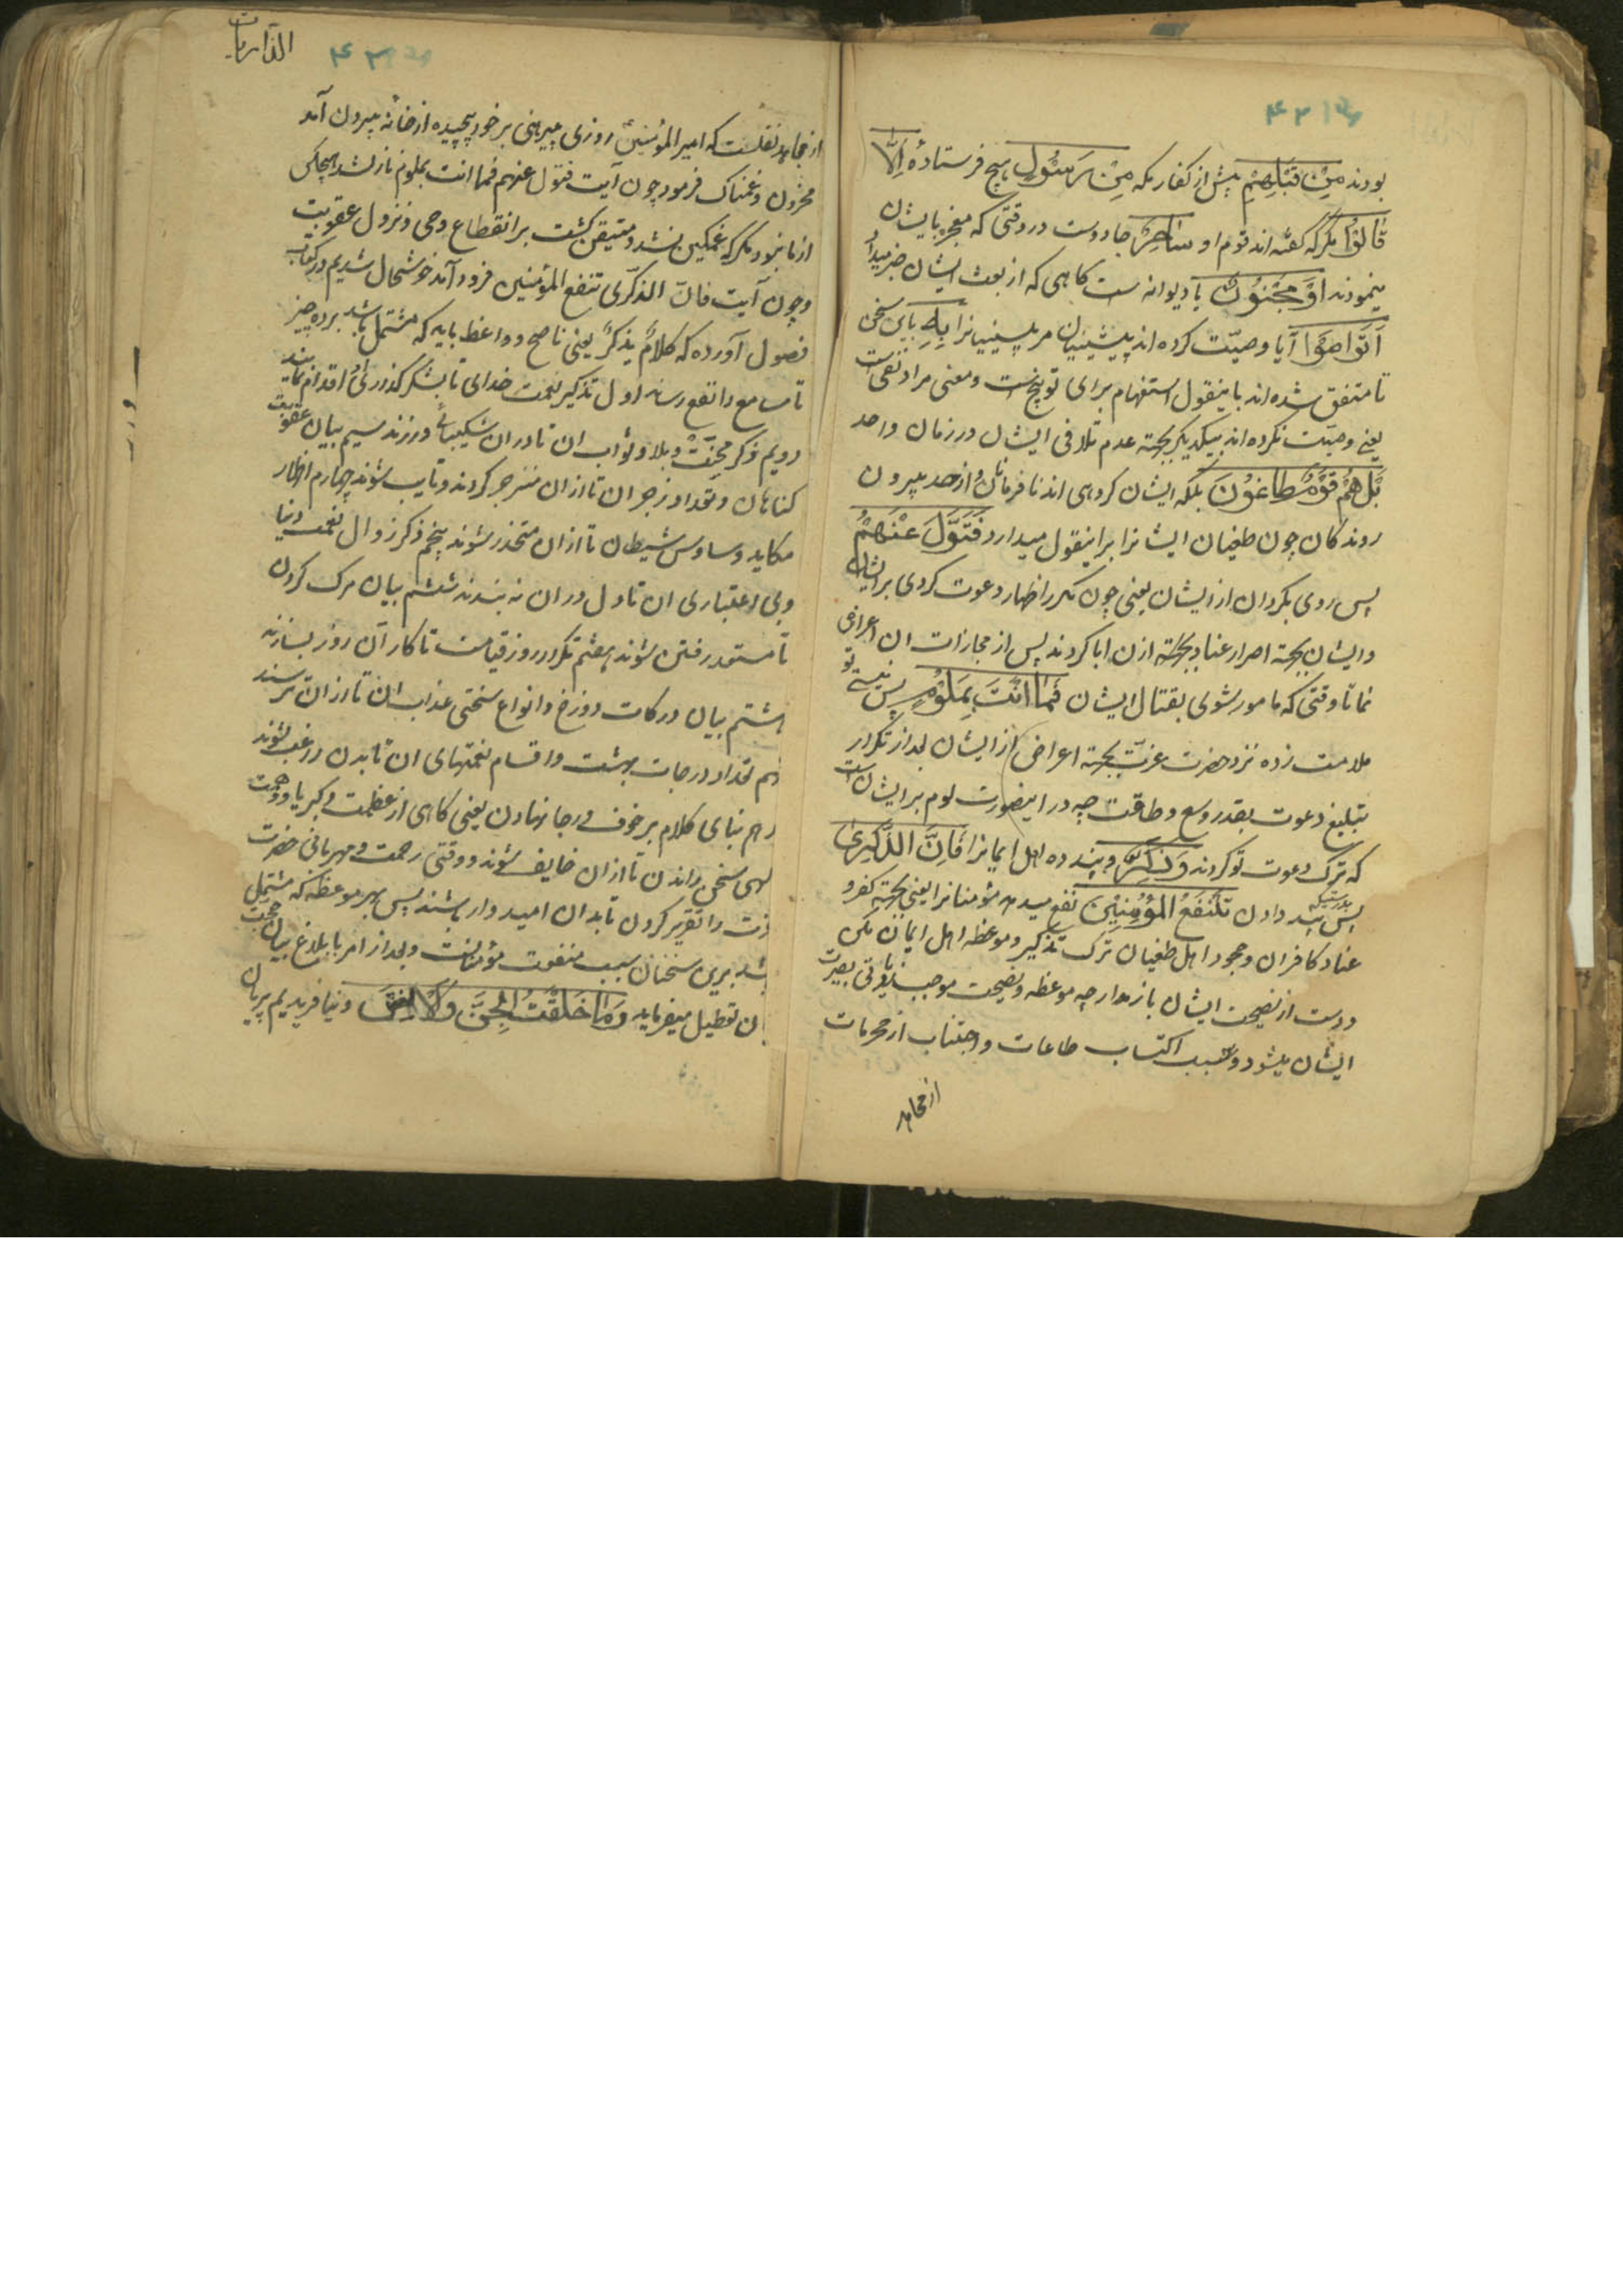 بودند مِنْ قَبْلِهِمْ پیش از کفار مکه مِنْ رَسُولٍ هیچ فرستادهٔ اِلَّا
قَالُوا مگر که گفته اند قوم او سَاحِرٌ جادوست در وقتی که معجزه بایشان
مینمودند اَوْ مَجْنُونٌ یا دیوانه است کاهی که از بعث ایشان خبر میداد
اَتَوَاصَوْا آیا وصیّت کرده اند پیشینیان مر پسینیانرا بِهِ باین سخن
تا متفق شده اند باینقول استفهام برای توبیخ است و معنی مراد نفی است
یعنی وصیّت نکرده اند بیکدیگر بجهة عدم تلاقی ایشان در زمان واحد
بَلْ هُمْ قَوْمٌ طَاغُونَ بلکه ایشان کروهی اند نافرمان و از حد بیرون
روندکان چون طغیان ایشانرا براینقول میدارد فَتَوَلَّ عَنْهُمْ
پس روی بکردان از ایشان یعنی چون مکرر اظهار دعوت کردی بر ایشان
و ایشان بجهة اصرار عناد از ان ابا کردند پس از مجازات ان اعراض
نما تا وقتی که مامور شوی بقتال ایشان فَمَا اَنْتَ بِمَلُومٍ پس نیستی تو
ملامت زده نزد حضرت عزت بجهة اعراض از ایشان بعد از تکرار
تبلیغ دعوت بقدر وسع و طاقت چه در اینصورت لوم بر ایشان است
که ترک دعوت تو کردند وَذَکِّرْ و پند ده اهل ایمانرا فَاِنَّ الذِّکْرٰی
پس بدرستیکه پند دادن تَنْفَعُ الْمُؤْمِنِینَ نفع میدهد مؤمنانرا یعنی بجهة کفر و
عناد کافران و جحود اهل طغیان ترک تذکیر و موعظه اهل ایمان مکن
و دست از نصیحت ایشان باز مدار چه موعظه و نصیحت موجب زیادتی بصیرت
ایشان میشود و سبب اکتساب طاعات و اجتناب از محرمات
از مجاهد
الذاریات
از مجاهد نقلست که امیر المؤمنین روزی پیرهنی بر خود پیچیده از خانه بیرون آمد
محزون و غمناک فرمود چون آیت فتول عنهم فما انت بملوم نازل شد هیچکس
از ما نبود مکر که غمکین نشد و متیقن کشت بر انقطاع وحی و نزول عقوبت
و چون آیت فانّ الذکری تنفع المؤمنین فرود آمد خوشحال شدیم در کتاب
فصول آورده که کلام یذکر یعنی ناصح و واعظ باید که مشتمل باشد بر ده چیز
تا سامع را نفع رساند اول تذکیر نعمت خدای تا بشکر کذاری اقدام نمایند
دویم ذکر محنت و بلا و ثواب ان تا دران شکیبائی ورزند سیم بیان عقوبت
کناهان و تعداد زجر ان تا از ان منزجر کردند و تایب شوند چهارم اظهار
مکاید و وساوس شیطان تا از ان متحذر شوند پنجم ذکر زوال نعمت دنیا
و بی اعتباری ان تا دل در ان نه بندند ششم بیان مرک کردن
تا مستعد رفتن شوند هفتم تکرار روز قیامت تا کار آن روز بسازند
هشتم بیان درکات دوزخ و انواع سختی عذاب ان تا از ان ترسند
نهم تعداد درجات بهشت و اقسام نعمتهای ان تا بدن راغب شوند
دهم بنای کلام بر خوف و رجا نهادن یعنی کاهی از عظمت و کبریا و هیبت
الهی سخن راندن تا از ان خایف شوند و وقتی رحمت و مهربانی حضرت
عزت را تقریر کردن تا بدان امیدوار باشند پس هر موعظه که مشتمل
باشد برین سخنان سبب منفعت مؤمنانست و بعد از امر بابلاغ بیان حجت
ان تعطیل میفرماید وَمَا خَلَقْتُ الْجِنَّ وَالْاِنْسَ و نیافریدیم پریان